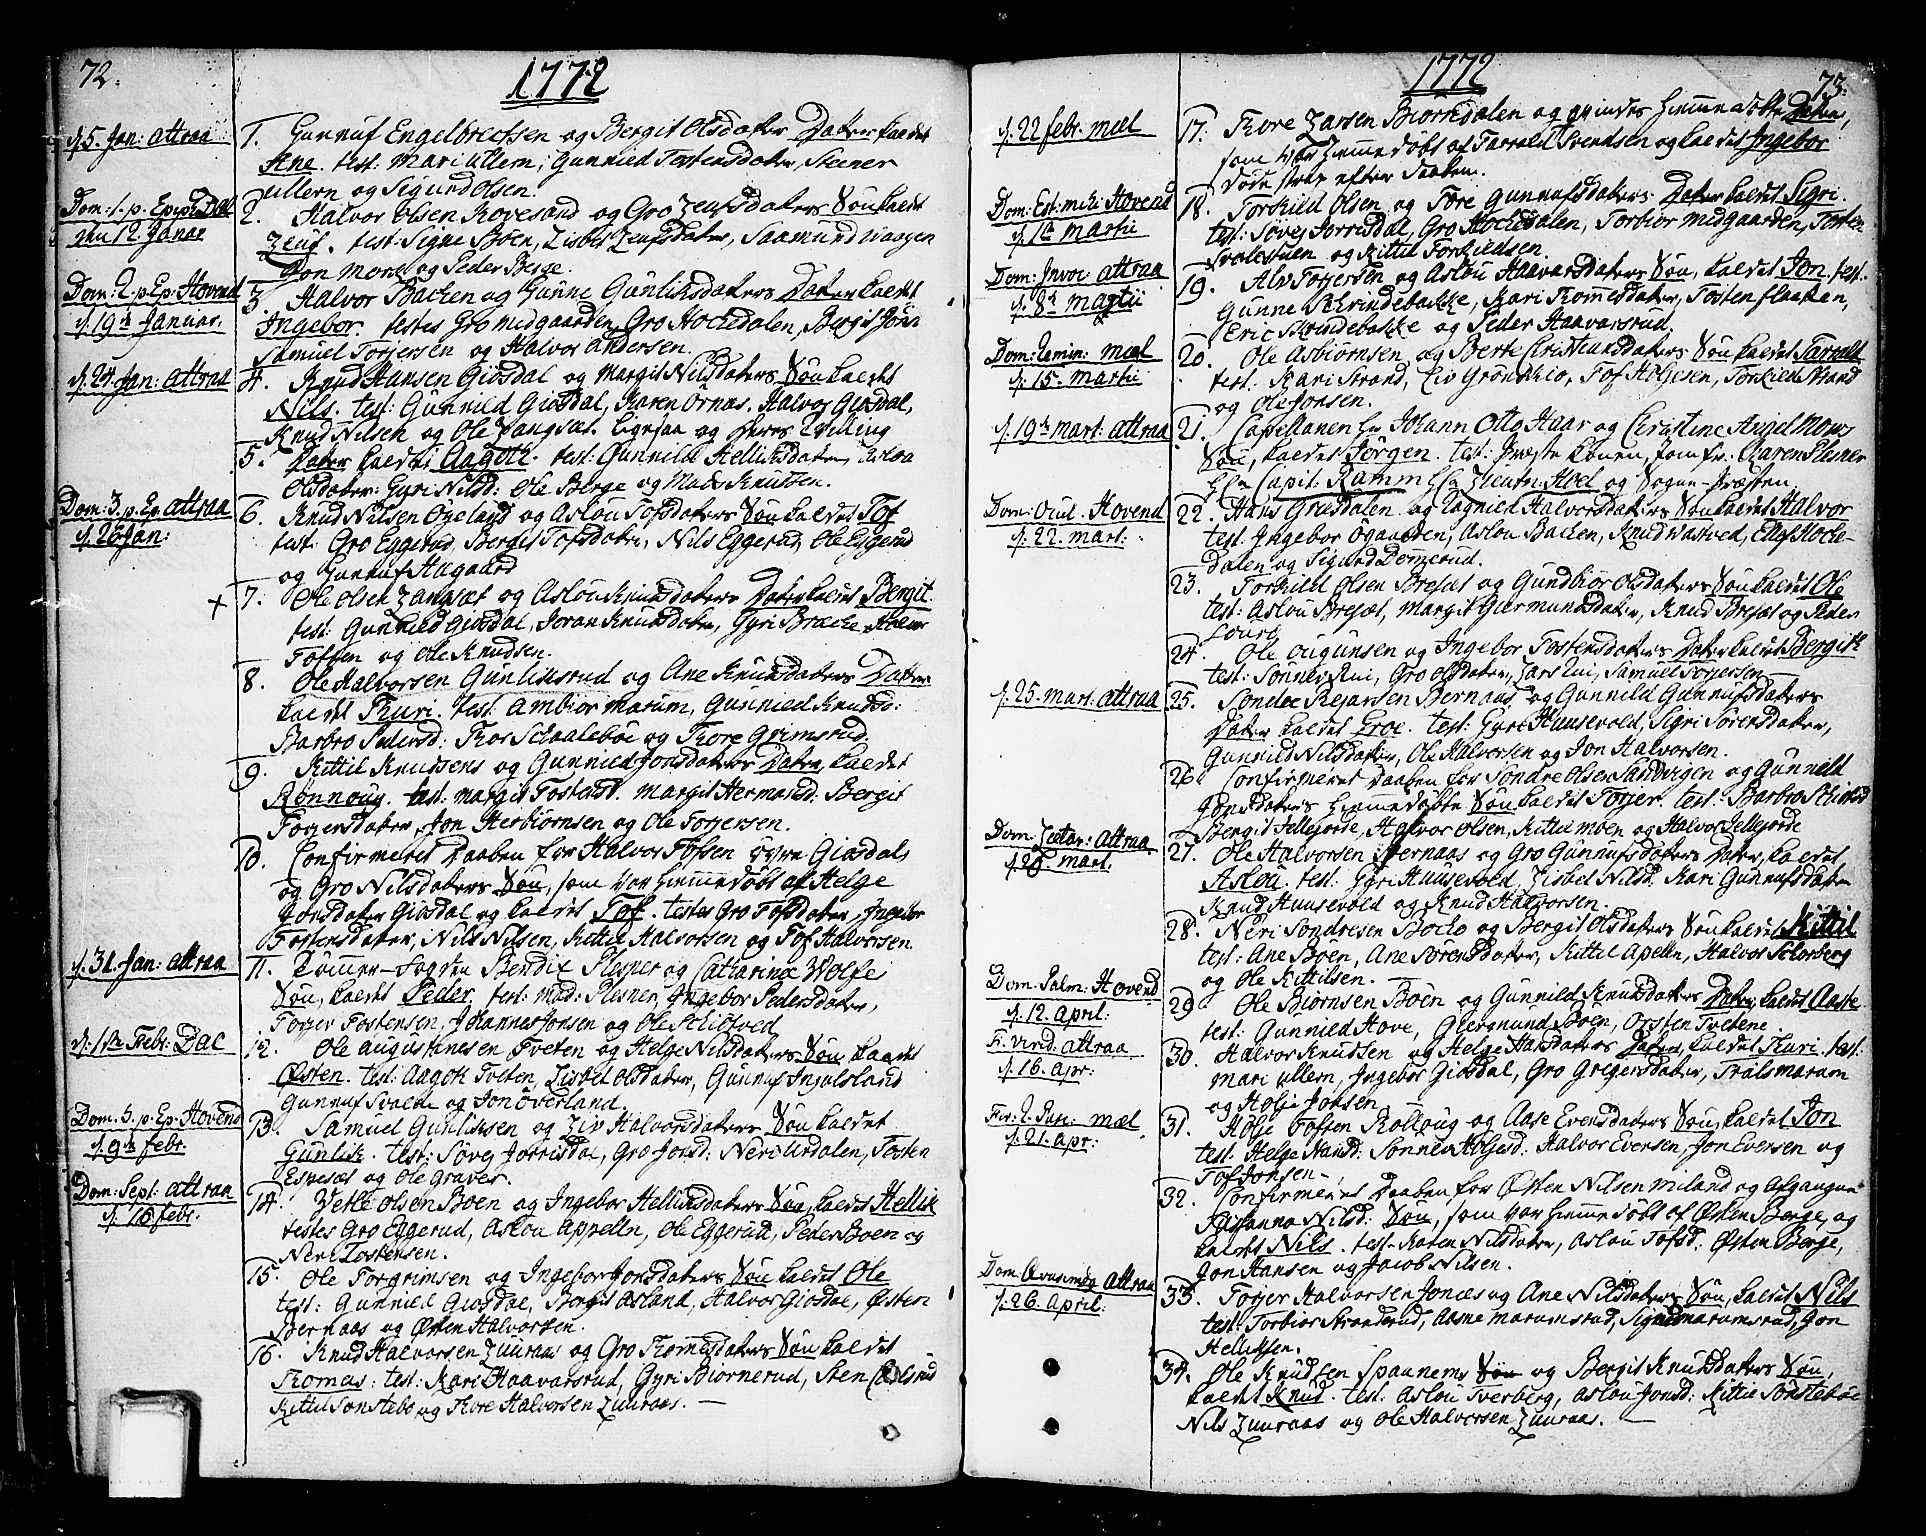 72.
1772
d. 5. Jan: attraa
1. Gunnuf Engelbrechsen og Bergit Olsdatter Datter kaldet
Ane. test: Mari ullern, Gunnied Tostensdatter, Steener
ullern og Sigurd Olsen.
Dom: 1. p. Epiph: Dal
den 12. Januar
2. Halvor Olsen Rovesand og Gro Zeufsdaters Søn kaldet
Zeuf. test: Signe Bøen, Lisbet Zeufsdater, Saamund Vaagen
Jon Moen og Peder Berge.
Dom: 2. p. Ep. Hovend
d. 19de Januar.
3. Halvor Backen og Gunne Gunliksdaters Dater kaldet
Ingebor. testes Gro Midgaarden, Gro Hockedalen, Bergit Jons
Samuel Torjersen og Halvor Andersen.
d. 24. Jan: attraa
4. Knud Hansen Giosdal og Margit Nilsdaters Søn kaldet
Nils. test: Gunnild Giosdal, Karen Ornæs, Halvor Giosdal,
Knud Nilsen og Ole Langsæt. ligesaa og deres Tvilling
5. Dater kaldet Aagoth. test: Gunnild Helliksdater, Aslou
Olsdater: Gyri Nilsd: Ole Berge og Mads Knutsen.
Dom: 3. p. Ep. attraa
d. 26 Jan:
6. Knud Nilsen Øgeland og Aslou Tofsdaters Søn kaldet Tof
test: Gro Eggerud, Bergit Tofsdater, Nils Eggerud, Ole Eggerud
og Gunnuf Aagaard
+ 7. Ole Olsen Langsæt og Aslou Knudsdaters Dater kaldet Bergit
test: Gunnild Giosdal, Joran Knudsdater, Gyri Bracke Halvor
Tofsen og Ole Knudsen.
8. Ole Halvorsen Gunliksrud og Ane Knudsdaters Datter
kaldet Turi. test. Ambior Marum, Gunnied Knudsd:
Barbro Pedersd: Thor Schaaleboe og Thore Grimsrud.
9. Kittil Knudsens og Gunnied Jonsdaters Dater kaldet
Rønnoug. test: Margit Tostensd. Margit Hermansd: Bergit
Torjersdater, Jon Herbiornsen og Ole Torjersen.
10. Confirmeret Daaben for Halvor Tofsen øvre Giosdals
og Gro Nilsdaters Søn, som var hiemmedøbt af Helge
Jonsdater Giosdal og kaldet Tof. testes Gro Tofsdater, Ingebor
Tostensdater, Nils Nilsen, Kittil Halvorsen og Tof Halvorsen
d. 31. Jan: attraa
11. Tømmer-Fogden Bendix Plesner og Catharina Wolfs
Søn, kaldet Peder. test: Mad: Plesner, Ingebor Pedersdater,
Torjer Tostensen, Johannes Jonsen og Ole Schiotved
d. 1ste Febr: Dal
12. Ole Augustinesen Tveten og Helge Nilsdaters Søn kaldet
Østen. test: Aagot Tveten, Lisbet Olsdater, Gunnuf Ingulsland
Gunnuf Svalde og Jon Overland.
Dom: 5. p. Ep: Hovend
d. 9de febr.
13. Samuel Gunliksen og Liv Halvorsdaters Søn kaldet
Gunlik. test: Søvej Jorrisdal, Gro Jonsd: Neri Urdalen, Tosten
Espesæt og Ole Graver.
Dom: Sept: attraa
d. 16 febr.
14. Vetle Olsen Boen og Ingebor Helliksdaters Søn, kaldet Hellik
testes Gro Eggerud, Aslou Appelln, Ole Eggerud, Peder Boen og
Neri Tostensen.
15. Ole Torgrimsen og Ingebor Jonsdaters Søn kaldet Ole
test: Gunnild Giosdal, Bergit Asland, Halvor Giosdal, Østen
Bernaas og Østen Halvorsen.
16. Knud Halvorsen Luuraas og Gro Tomesdaters Søn kaldet
Thomas: test: Kari Haavarsrud, Gyri Biørnerud, Sten
Kittil Sønstebø og Thore Halvorsen Luuraas. —
1772
73.
d. 22 febr. mæl
17. Thore Larsen Biorkdalen og qvindes hiemmedøbte Dater,
som var hiemmedøbt af Tarrald Svendsen og kaldet Ingebor
døde strax efter Daaben.
Dom: Est: mihi Hovend
d. 1te martii
18. Torkild Olsen og Tore Gunnufsdaters Dater kaldet Sigri.
test: Søvej Jorrisdal, Gro Hockedalen, Torbior Midgaarden, Tosten
Svalestuen og Kittil Torkildsen.
Dom: Invoc: attraa
d. 8de martii
19. Alv Torjersen og Aslou Haavarsdaters Søn, kaldet Jon. test:
Gunne Skrindebakke, Kari Tommesdater, Tosten Flaaten,
Eric Skrindebakke og Peder Haavarsrud.
Dom: Remin: mæl
d. 15. martii
20. Ole Asbiørnsen og Berte Cristiansdaters Søn kaldet Tarrald
test: Kari Strand, Liv Grønskio, Tof Holgesen, Torkild Strand
og Ole Jonsen.
d. 19de mart: attraa
21. Capellanen Hr Johann Otto Haar og Christine Angel Mous
Søn, kaldet Jørgen. test: Præste konen, Jomfr: Karen Plesner
Hr Capit. Ramm Hr Lieutn: Hvel og Sogne-Præsten
Dom: Ocul. Hovend
d. 22. mart:
22. Hans Græsdalen og Ragnied Halvorsdaters Søn kaldet Halvor
test: Ingebor Øgaarden, Aslou Backen, Knud Vastved, Ellef Hocke-
dalen og Sigurd Dørrerud.
23. Torkild Olsen Bresæt og Gundbiør Olsdaters Søn kaldet Ole
test: Aslou Bresæt, Margit Giermundsdater, Knud Bresæt og Peder
Loure
24. Ole Ougunsen og Ingebor Tostensdaters Dater kaldet Bergith
test: Sønnev Rui, Gro Olsdater, Lars Rui, Samuel Torjersen
d. 25. mart. attraa
25. Søndre Rejarsen Bernaas og Gunnild Gunnufsdaters
Dater kaldet Groe. test: Gyri Huusevold, Sigri Sørensdater,
Gunnild Nilsdater, Ole Halvorsen og Jon Halvorsen.
26. Confirmeret Daaben for Søndre Olsen Sandvigen og Gunnild
Jonsdaters hiemmedøbte Søn kaldet Torjer. test: Barbro Schiotved
Bergit Jellejorde, Halvor Olsen, Kittil Moen og Halvor Jellejorde
Dom: Lætar: attraa
d. 29 mart.
27. Ole Halvorsen Bernaas og Gro Gunnufsdaters Dater, kaldet
Aslou. test: Gyri Huusevold, Lisbet Nilsd. Kari Gunnufsdater
Knud Huusevold og Knud Halvorsen.
28. Neri Søndresen Boclo og Bergit Olsdaters Søn kaldet Kittil
test: Ane Boen, Ane Sørensdater, Kittil Apelln, Halvor Schorberg
og Ole Kittilsen. —
Dom. Palm: Hovend
d. 12. April:
29. Ole Biørnsen Boen og Gunnild Knudsdaters Dater, kaldet Aaste
test: Gunnied Hove, Giermund Boen, Orsten Tvetene.
F: virid. attraa
d. 16. Apr:
30. Halvor Knutsen og Helge Hansdaters Dater, kaldet Turi. test:
Mari ullern, Ingebor Giosdal, Gro Gregersdater, Trøls Maram
og Holje Jonsen.
Fer: 2. Pasc: mæl
d. 21. Apr:
31. Holje Tofsen Rolloug og Aase Evensdaters Søn, kaldet Jon
test: Helge Hansd: Sønnev Holjesd: Halvor Eversen, Jon Eversen og
Tof Jonsen. —
32. Confirmeret Daaben for Østen Nilsen Miland og Afgangne
Susanna Nilsd: Søn, som var hiemmedøbt af Østen Berge, og
kaldet Nils. test: Karen Nilsdater, Aslou Tofsd: Østen Berge,
Jon Hansen og Jacob Nilsen.
Dom. Qvasimog attraa
d. 26. April:
33. Torjer Halvorsen Jonæs og Ane Nilsdaters Søn, kaldet Nils
test: Torbior Stranderud, Aasne Marumsrud, Sigurd Marumsrud, Jon
Helliksen.
34. Ole Knudsen Spaanems Søn og Bergit Knudsdaters Søn,
kaldet Knud. test: Aslou Tverberg, Aslou Jonsd: Kittil Sønstebøe
Nils Luuraas og Ole Halvorsen Luuraas. —